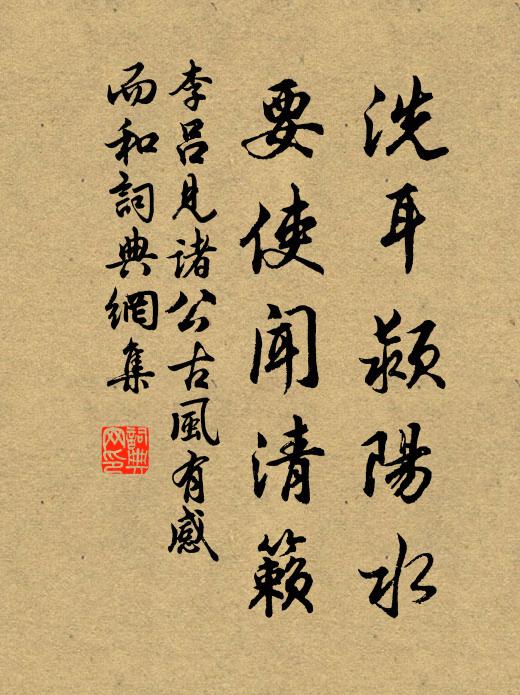 洗耳颍陽水
要使聞清籟
李呂見諸公古風有感
而和詞典網集
詞典
网印